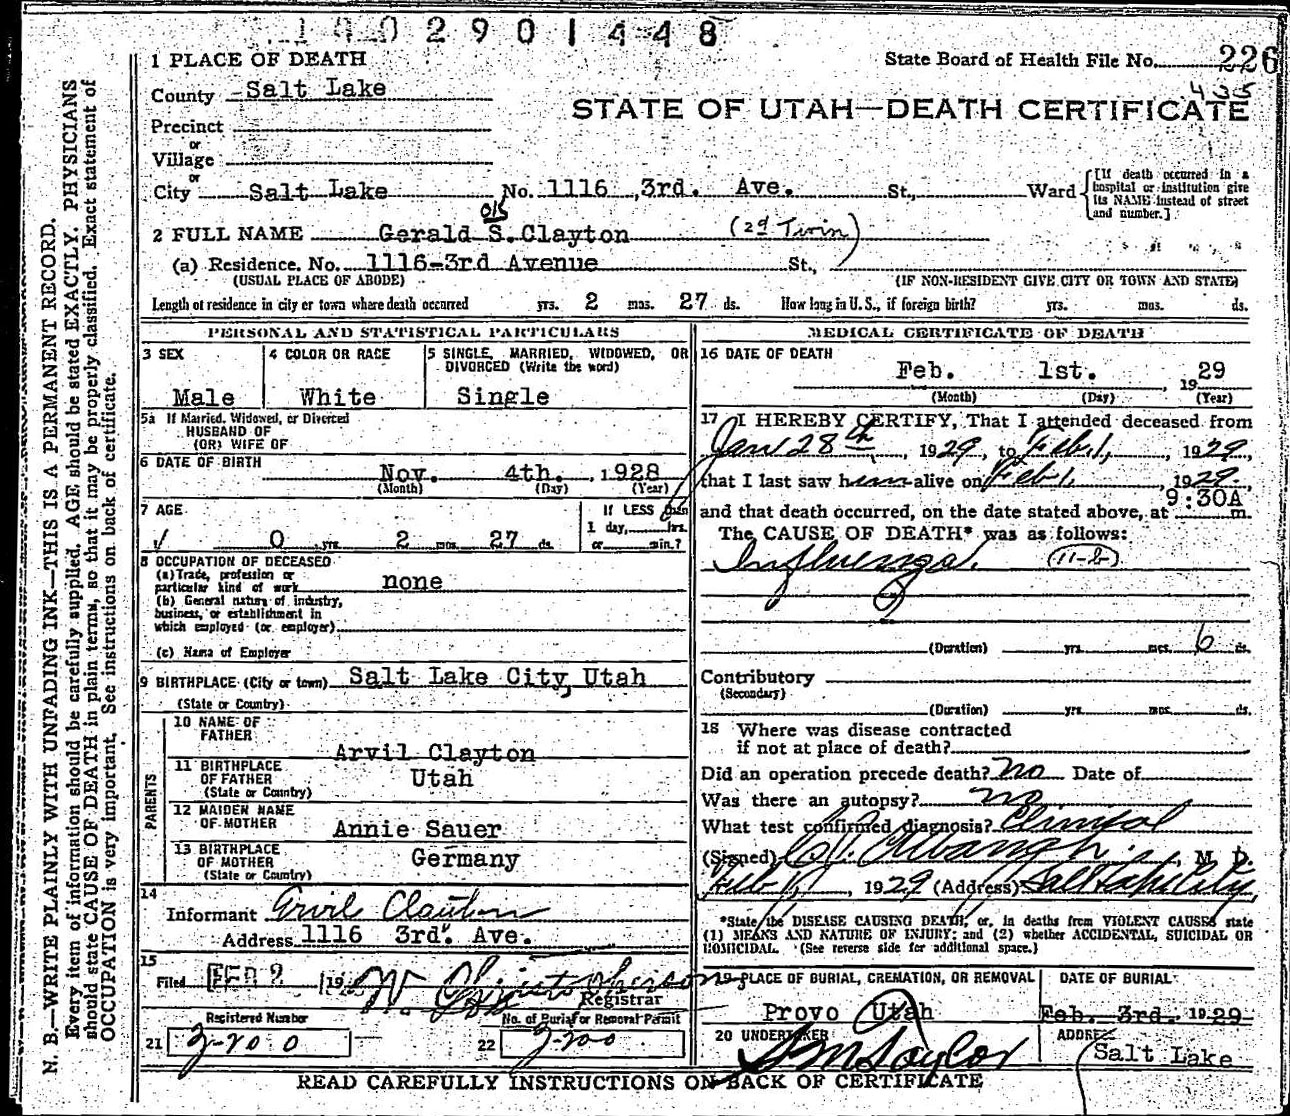 1002901448
1 PLACE OF DEATH
State Board of Health File No. 226
County Salt Lake
435
STATE OF UTAH—DEATH CERTIFICATE
Precinct
or
Village
or
City Salt Lake No. 1116 , 3rd. Ave. St., Ward
[If death occurred in a hospital or institution give its NAME instead of street and number.]
ok
2 FULL NAME Gerald S. Clayton (2d Twin)
(a) Residence. No. 1116-3rd Avenue St.,
(USUAL PLACE OF ABODE) (IF NON-RESIDENT GIVE CITY OR TOWN AND STATE)
Length of residence in city or town where death occurred yrs. 2 mos. 27 ds. How long in U.S., if foreign birth? yrs. mos. ds.
PERSONAL AND STATISTICAL PARTICULARS
3 SEX
Male
4 COLOR OR RACE
White
5 SINGLE, MARRIED, WIDOWED, OR
DIVORCED (Write the word)
Single
5a If Married, Widowed, or Divorced
HUSBAND OF
(OR) WIFE OF
6 DATE OF BIRTH
Nov. 4th. , 1928
(Month) (Day) (Year)
7 AGE
0 yrs. 2 mos. 27 ds.
If LESS than
1 day, hrs.
or min.?
8 OCCUPATION OF DECEASED
(a) Trade, profession or
particular kind of work none
(b) General nature of industry,
business, or establishment in
which employed (or employer)
(c) Name of Employer
9 BIRTHPLACE (City or town) Salt Lake City, Utah
(State or Country)
PARENTS
10 NAME OF
FATHER
Arvil Clayton
11 BIRTHPLACE
OF FATHER Utah
(State or Country)
12 MAIDEN NAME
OF MOTHER
Annie Sauer
13 BIRTHPLACE
OF MOTHER Germany
(State or Country)
14
Informant Arvil Clayton
Address 1116 3rd. Ave.
15
Filed FEB 2 19 W Christopherson
Registrar
Registered Number
21 2-200
No. of Burial or Removal Permit
22 2-200
MEDICAL CERTIFICATE OF DEATH
16 DATE OF DEATH
Feb. 1st. , 1929
(Month) (Day) (Year)
17 I HEREBY CERTIFY, That I attended deceased from
Jan 28th, 1929, to Feb 1, 1929,
that I last saw him alive on Feb 1, 1929,
9:30A
and that death occurred, on the date stated above, at m.
The CAUSE OF DEATH* was as follows:
Influenza. (11-b)
(Duration) yrs. mos. 6 ds.
Contributory
(Secondary)
(Duration) yrs. mos. ds.
18 Where was disease contracted
if not at place of death?
Did an operation precede death? no Date of
Was there an autopsy? no
What test confirmed diagnosis? Clinical
(Signed) , M. D.
Feb 1, 1929 (Address) Salt Lake City
*State the DISEASE CAUSING DEATH, or, in deaths from VIOLENT CAUSES state
(1) MEANS AND NATURE OF INJURY; and (2) whether ACCIDENTAL, SUICIDAL OR
HOMICIDAL. (See reverse side for additional space.)
19 PLACE OF BURIAL, CREMATION, OR REMOVAL
Provo Utah
DATE OF BURIAL
Feb. 3rd. 1929
20 UNDERTAKER
S M Taylor
ADDRESS
Salt Lake
READ CAREFULLY INSTRUCTIONS ON BACK OF CERTIFICATE
N. B.—WRITE PLAINLY WITH UNFADING INK—THIS IS A PERMANENT RECORD.
Every item of information should be carefully supplied. AGE should be stated EXACTLY. PHYSICIANS
should state CAUSE OF DEATH in plain terms, so that it may be properly classified. Exact statement of
OCCUPATION is very important. See instructions on back of certificate.